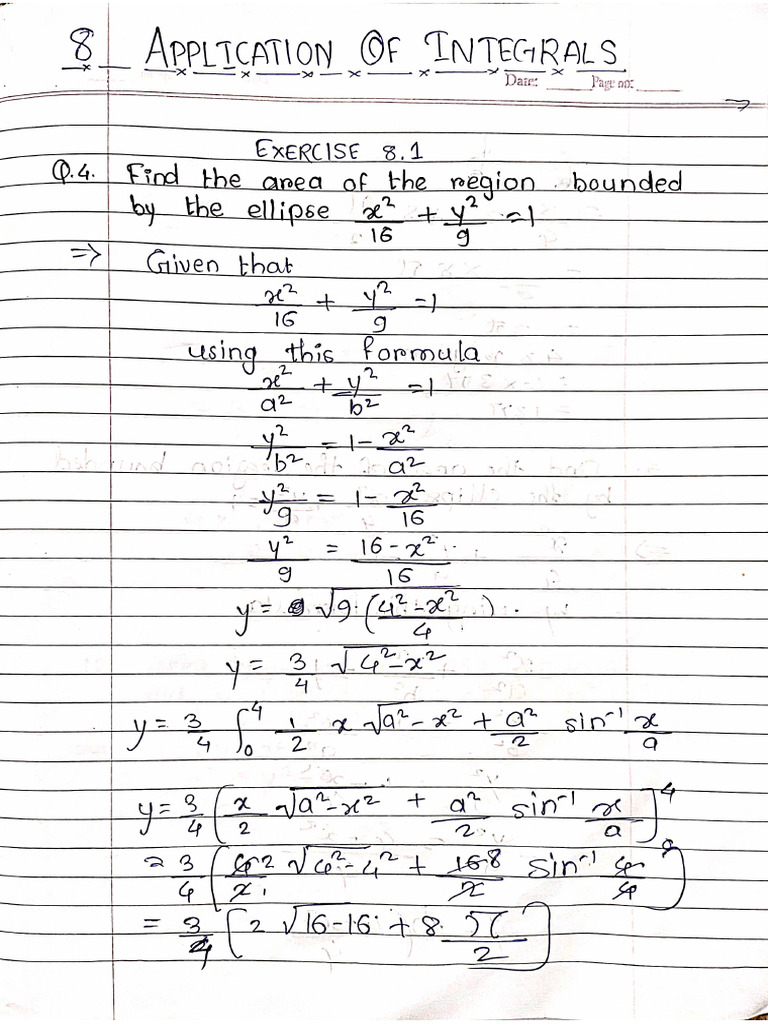 8 APPLICATION OF INTEGRALS
Date: ______ Page no: ______
EXERCISE 8.1
Q.4. Find the area of the region bounded
by the ellipse x²/16 + y²/9 = 1
⇒ Given that
x²/16 + y²/9 = 1
using this formula
x²/a² + y²/b² = 1
y²/b² = 1 - x²/a²
y²/9 = 1 - x²/16
y²/9 = 16 - x²/16
y = √9 (4² - x²/4)
y = 3/4 √4² - x²
y = 3/4 ∫₀⁴ 1/2 x √a² - x² + a²/2 sin⁻¹ x/a
y = 3/4 [x/2 √a² - x² + a²/2 sin⁻¹ x/a]⁴₀
= 3/4 [4 2/2 1 √4² - 4² + 16 8/2 sin⁻¹ 4/4]
= 3/4 [2 √16 - 16 + 8 π/2]